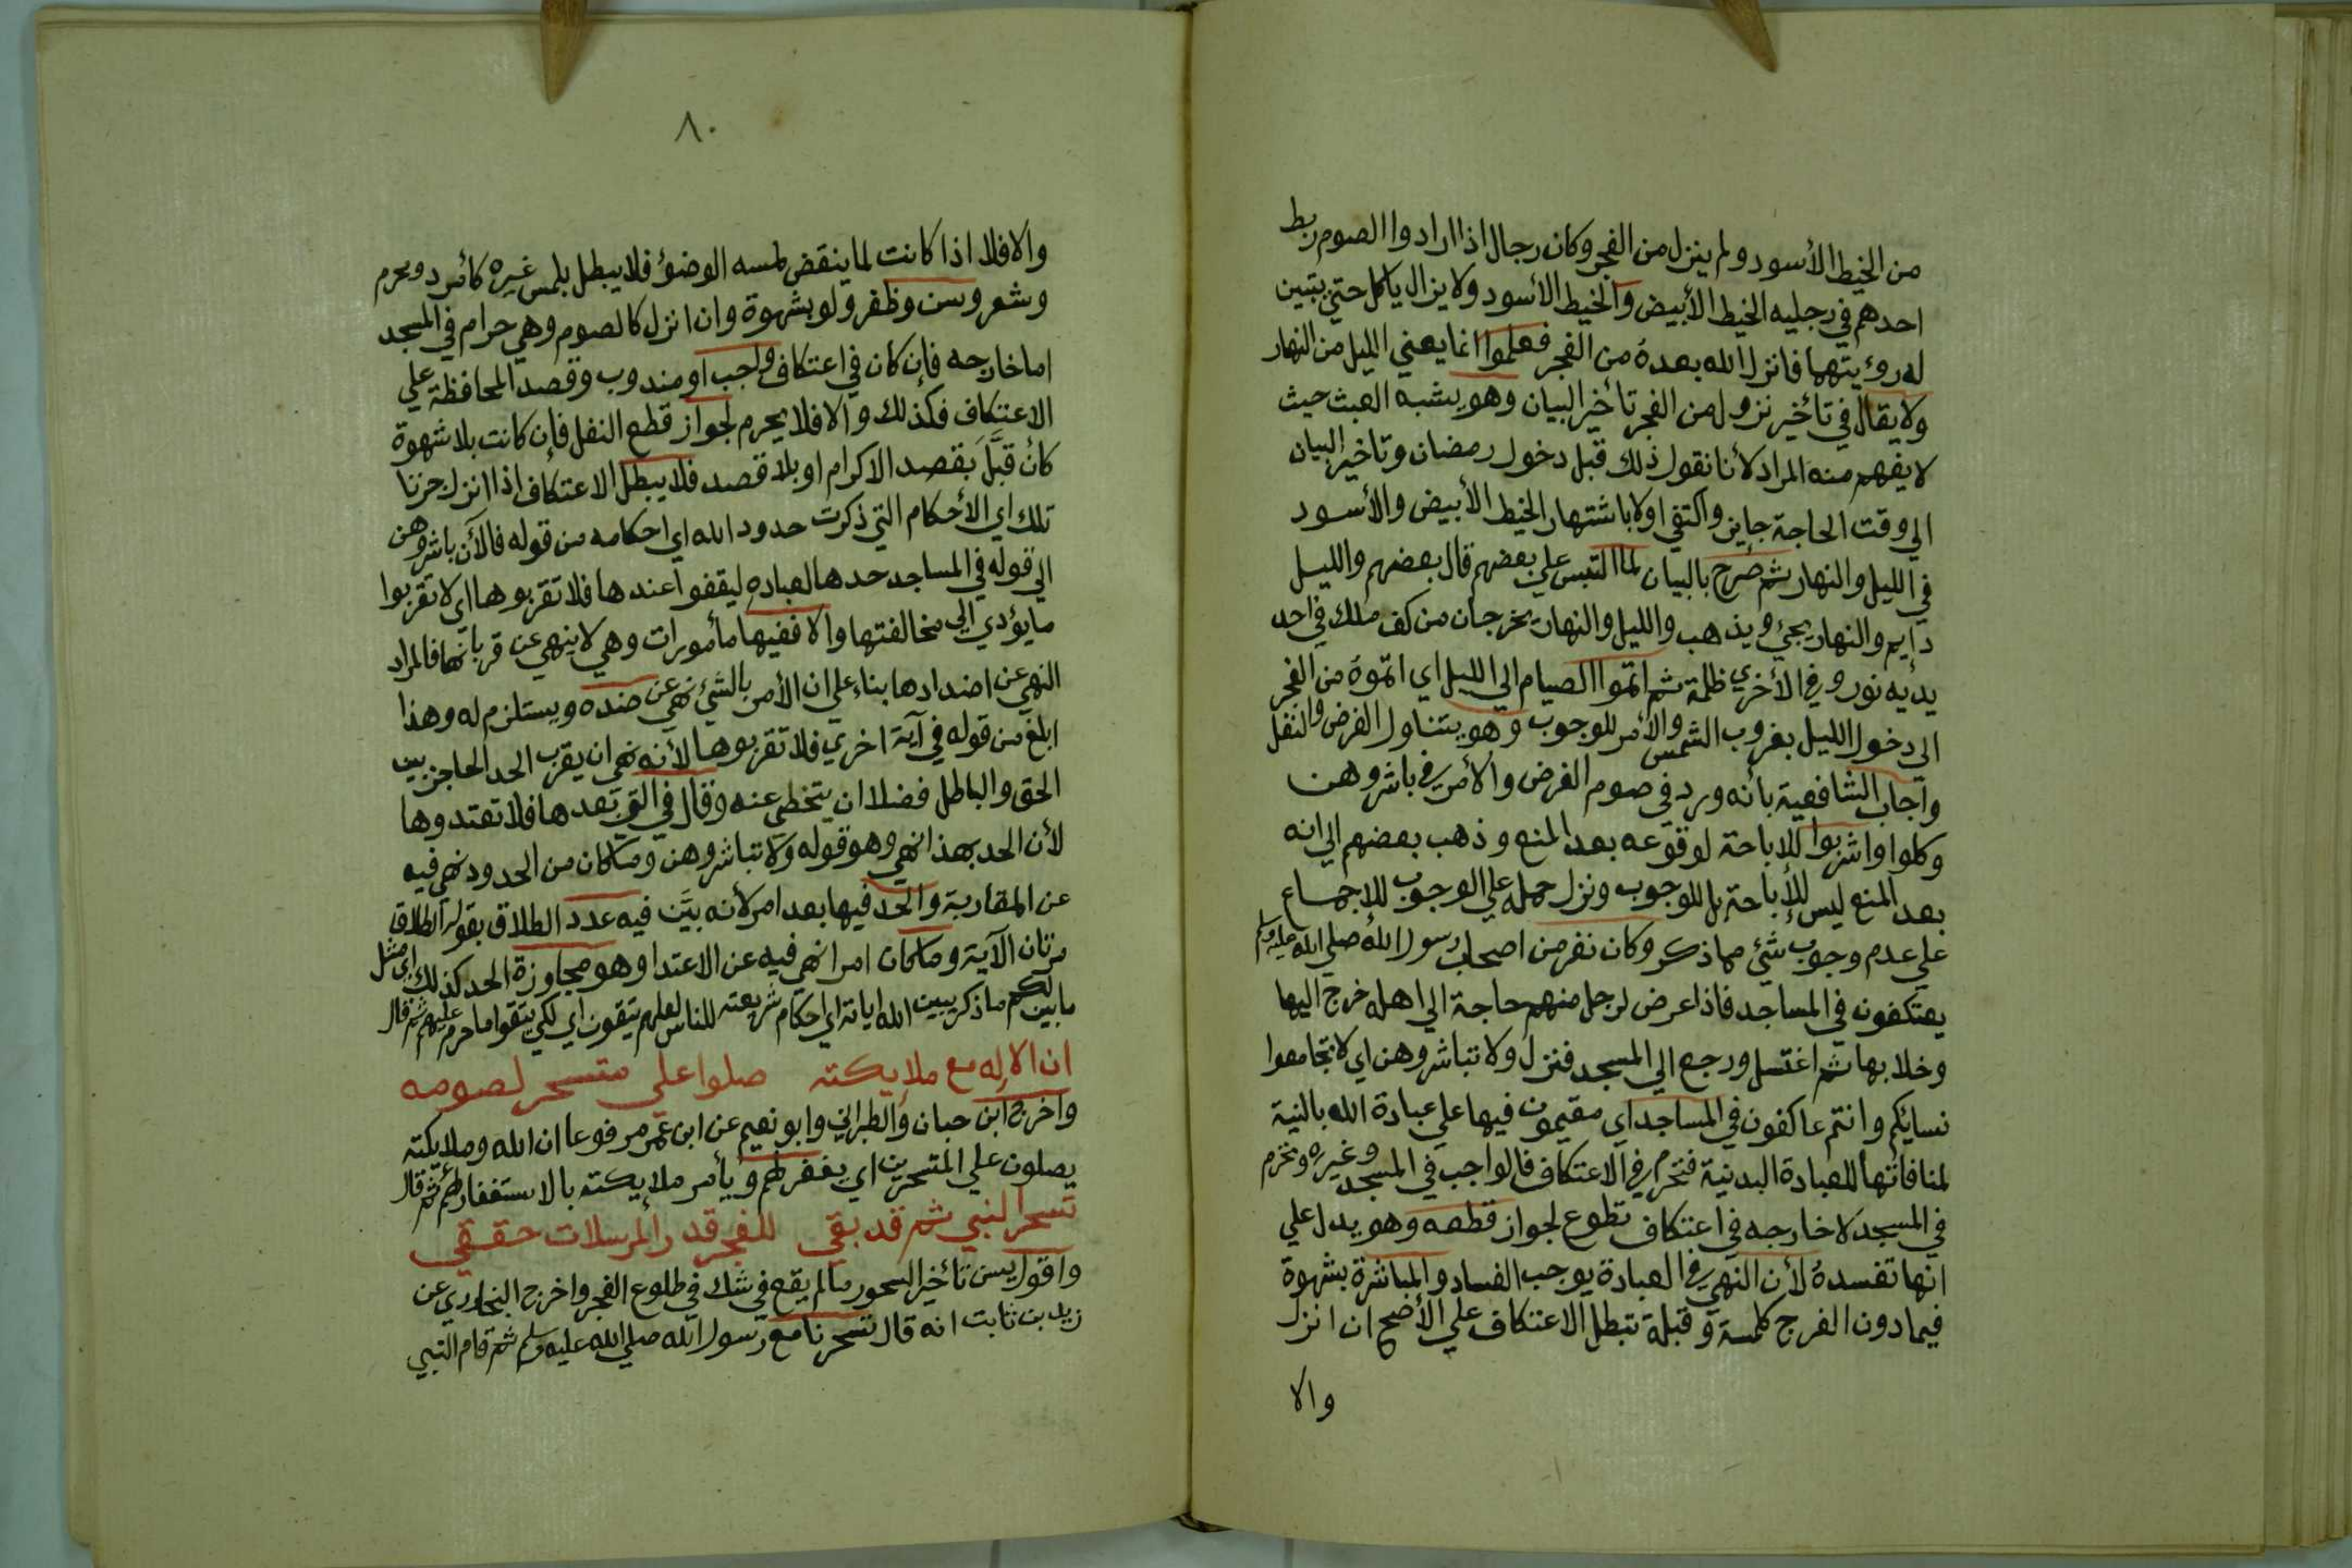 من الخيط الأسود ولم ينزل من الفجر وكان رجال اذا ارادوا الصوم ربط
احدهم في رجليه الخيط الأبيض والخيط الأسود ولا يزال ياكل حتي يتبين
له رؤيتهما فانزل الله بعده من الفجر فعلموا انما يعني الليل من النهار
ولا يقال في تأخير نزول من الفجر تأخير البيان وهو يشبه العبث حيث
لا يفهم منه المراد لأنا نقول ذلك قبل دخول رمضان وتاخير البيان
الي وقت الحاجة جايز واكتفي اولا باشتهار الخيط الأبيض والأسود
في الليل والنهار ثم صرح بالبيان لما التبس علي بعضهم قال بعضهم والليل
دايم والنهار يجئ ويذهب والليل والنهار يخرجان من كف ملك في احد
يديه نور وفي الأخري ظلمة ثم اتموا الصيام الي الليل اي اتموه من الفجر
الي دخول الليل بغروب الشمس والأمر للوجوب وهو يتناول الفرض والنفل
واجاب الشافعية بأنه ورد في صوم الفرض والأمر في باشروهن
وكلوا واشربوا للاباحة لوقوعه بعد المنع وذهب بعضهم الي انه
بعد المنع ليس للأباحة بل للوجوب ونزل حمله علي الوجوب للإجماع
علي عدم وجوب شئ مما ذكر وكان نفر من اصحاب رسول الله صلي الله عليه وسلم
يعتكفون في المساجد فاذا عرض لرجل منهم حاجة الي اهله خرج اليها
وخلا بها ثم اغتسل ورجع الي المسجد فنزل ولا تباشروهن اي لا تجامعوا
نسايكم وانتم عاكفون في المساجد اي مقيمون فيها علي عبادة الله بالنية
لمنافاتها للعبادة البدنية فتحرم في الاعتكاف فالواجب في المسجد وغيره وتحرم
في المسجد لا خارجه في اعتكاف تطوع لجواز قطعه وهو يدل علي
انها تفسده لأن النهي في العبادة يوجب الفساد والمباشرة بشهوة
فيما دون الفرج كلمسة وقبلة تبطل الاعتكاف علي الأصح ان انزل
والا
٨٠
والا فلا اذا كانت لما ينقض لمسه الوضؤ فلا يبطل بلمس غيره كأمرد ومحرم
وشعر وسن وظفر ولو بشهوة وان انزل كالصوم وهي حرام في المسجد
اما خارجه فإن كان في اعتكاف واجب او مندوب وقصد المحافظة علي
الاعتكاف فكذلك والا فلا يحرم لجواز قطع النفل فإن كانت بلا شهوة
كأن قبَّل بقصد الاكرام او بلا قصد فلا يبطل الاعتكاف اذا انزل جزنا
تلك اي الأحكام التي ذكرت حدود الله اي احكامه من قوله فالآن باشروهن
الي قوله في المساجد حدها لعباده ليقفوا عندها فلا تقربوها اي لا تقربوا
ما يؤدي الي مخالفتها والا ففيها مأمورات وهي لا ينهي عن قربانها فالمراد
النهي عن اضدادها بناء علي ان الأمر بالشئ نهي عن ضده ويستلزم له وهذا
ابلغ من قوله في آية اخري فلا تقربوها لأنه نهي ان يقرب الحد الحاجز بين
الحق والباطل فضلا ان يتخطي عنه وقال في التي بعدها فلا تعتدوها
لأن الحد بهذا نهي وهو قوله ولا تباشروهن وما كان من الحدود نهي فيه
عن المقاربة والحد فيها بعد امر لأنه بيَّن فيه عدد الطلاق بقوله الطلاق
مرتان الآية وما كان امرا نهي فيه عن الاعتدا وهو مجاوزة الحد كذلك اي مثل
ما بين لكم ما ذكر يبين الله اياته اي احكام شريعته للناس لعلهم يتقون اي لكي يتقوا ما حرم عليهم ثم قال
ان الاله مع ملايكته صلوا علي متسحر لصومه
واخرج ابن حبان والطبراني وابو نعيم عن ابن عمر مرفوعا ان الله وملايكته
يصلون علي المتسحرين اي يغفر لهم ويأمر ملايكته بالاستغفار لهم ثم قال
تسحر النبي ثم قد بقي للفجر قدر المرسلات حققي
واقول يسن تأخير السحور ما لم يقع في شك في طلوع الفجر واخرج البخاري عن
زيد بن ثابت انه قال تسحرنا مع رسول الله صلي الله عليه وسلم ثم قام النبي